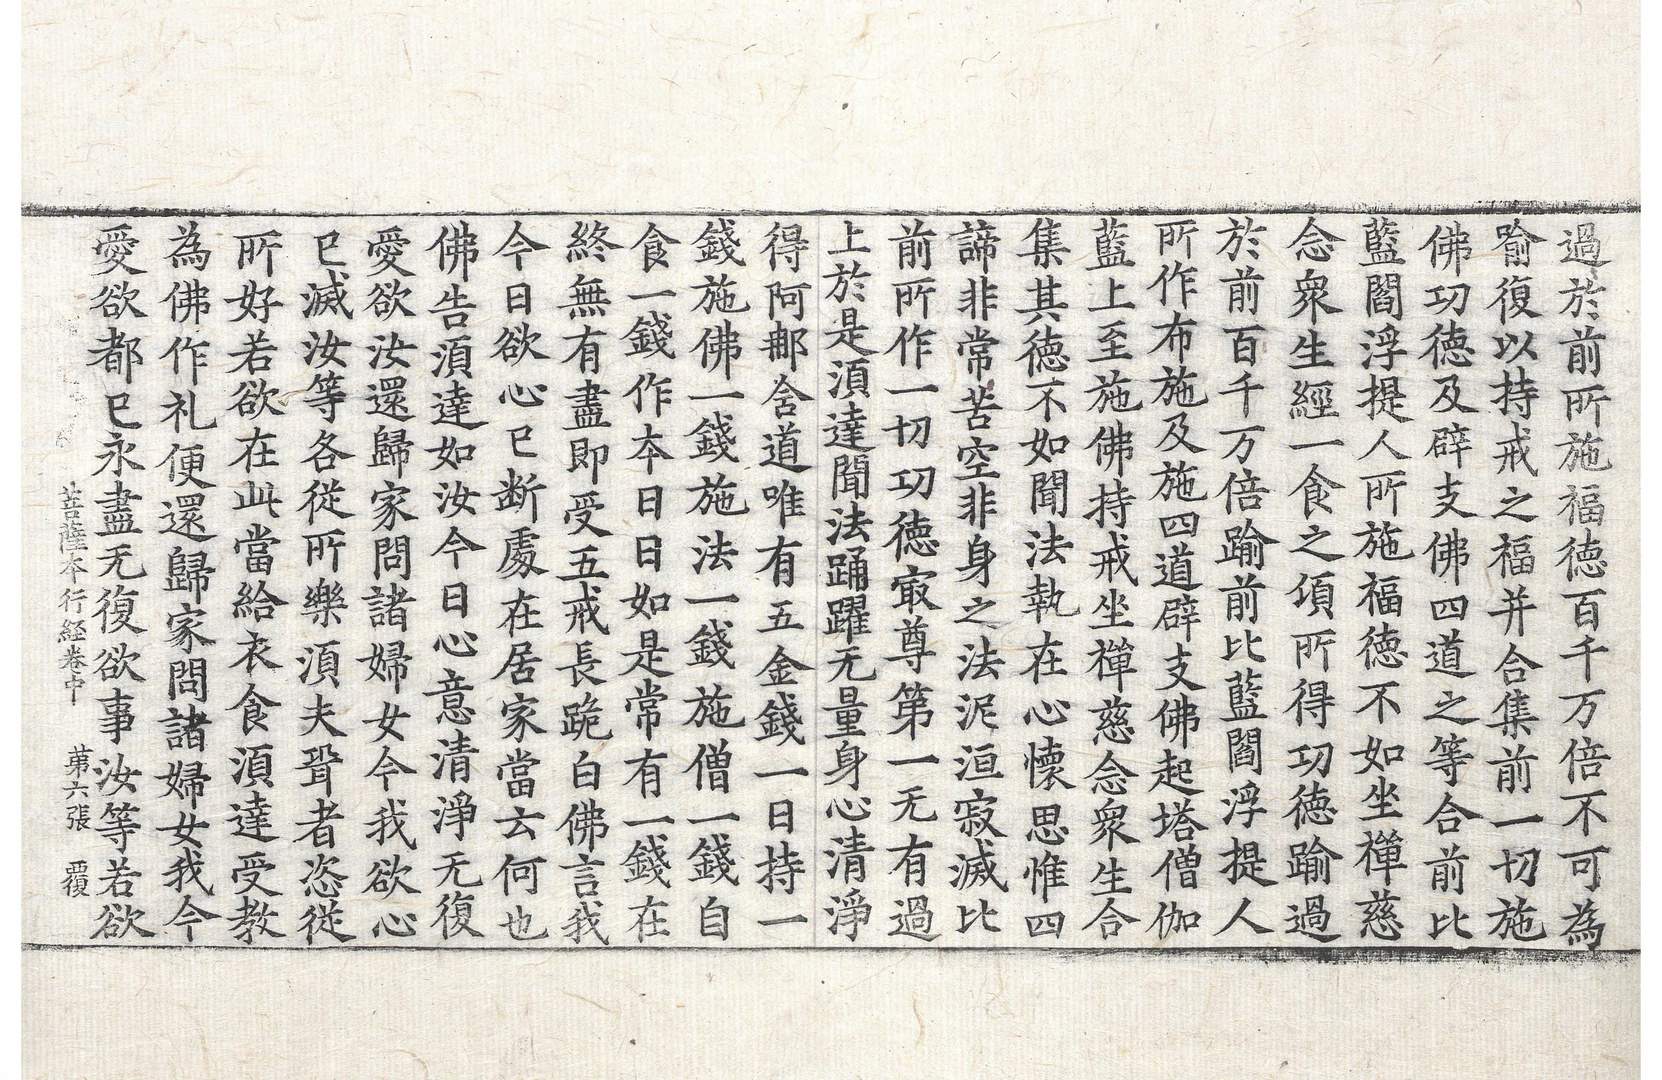 過於前所施福德百千万倍不可為
喻復以持戒之福并合集前一切施
佛功德及辟支佛四道之等合前比
藍閻浮提人所施福德不如坐禪慈
念衆生經一食之頃所得功德踰過
於前百千万倍踰前比藍閻浮提人
所作布施及施四道辟支佛起塔僧伽
藍上至施佛持戒坐禪慈念衆生合
集其德不如聞法執在心懷思惟四
諦非常苦空非身之法泥洹寂滅比
前所作一切功德㝡尊第一无有過
上於是湏達聞法踊躍无量身心清淨
得阿那含道唯有五金錢一日持一
錢施佛一錢施法一錢施僧一錢自
食一錢作夲日日如是常有一錢在
終無有盡即受五戒長跪白佛言我
今日欲心已断處在居家當云何也
佛告湏達如汝今日心意清淨无復
愛欲汝還歸家問諸婦女今我欲心
已滅汝等各從所樂湏夫聟者恣從
所好若欲在此當給衣食湏達受教
為佛作礼便還歸家問諸婦女我今
愛欲都已永盡无復欲事汝等若欲
菩薩夲行経卷中 苐六張 覆